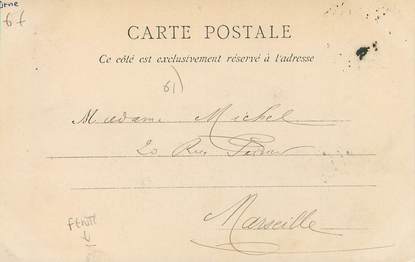 Orne
6 f
CARTE POSTALE
Ce côté est exclusivement réservé à l'adresse
61)
Madame Michel
20 Rue
Marseille